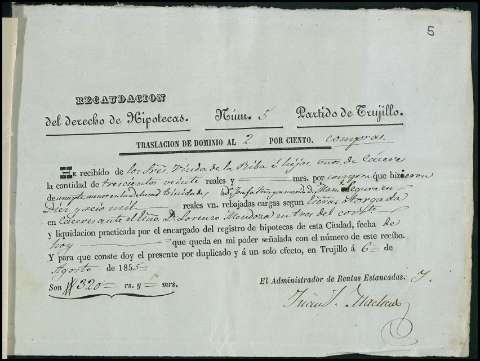 5
RECAUDACION
del derecho de Hipotecas. Núm. 5 Partido de Trujillo.
TRASLACION DE DOMINIO AL 2 POR CIENTO. compras
HE recibido de los Sres. Viuda de la Riba é hijos de Cáceres
la cantidad de trescientos veinte reales y mrs. por compra que hicieron
en
Diez y seis mil reales vn. rebajadas cargas segun otorgada
en Cáceres ante el D. Lorenzo en tres del
y liquidacion practicada por el encargado del registro de hipotecas de esta Ciudad, fecha de
hoy que queda en mi poder señalada con el número de este recibo.
Y para que conste doy el presente por duplicado y á un solo efecto, en Trujillo á 6 de
Agosto de 185
Son 320 rs. y mrs.
El Administrador de Rentas Estancadas.
Juan